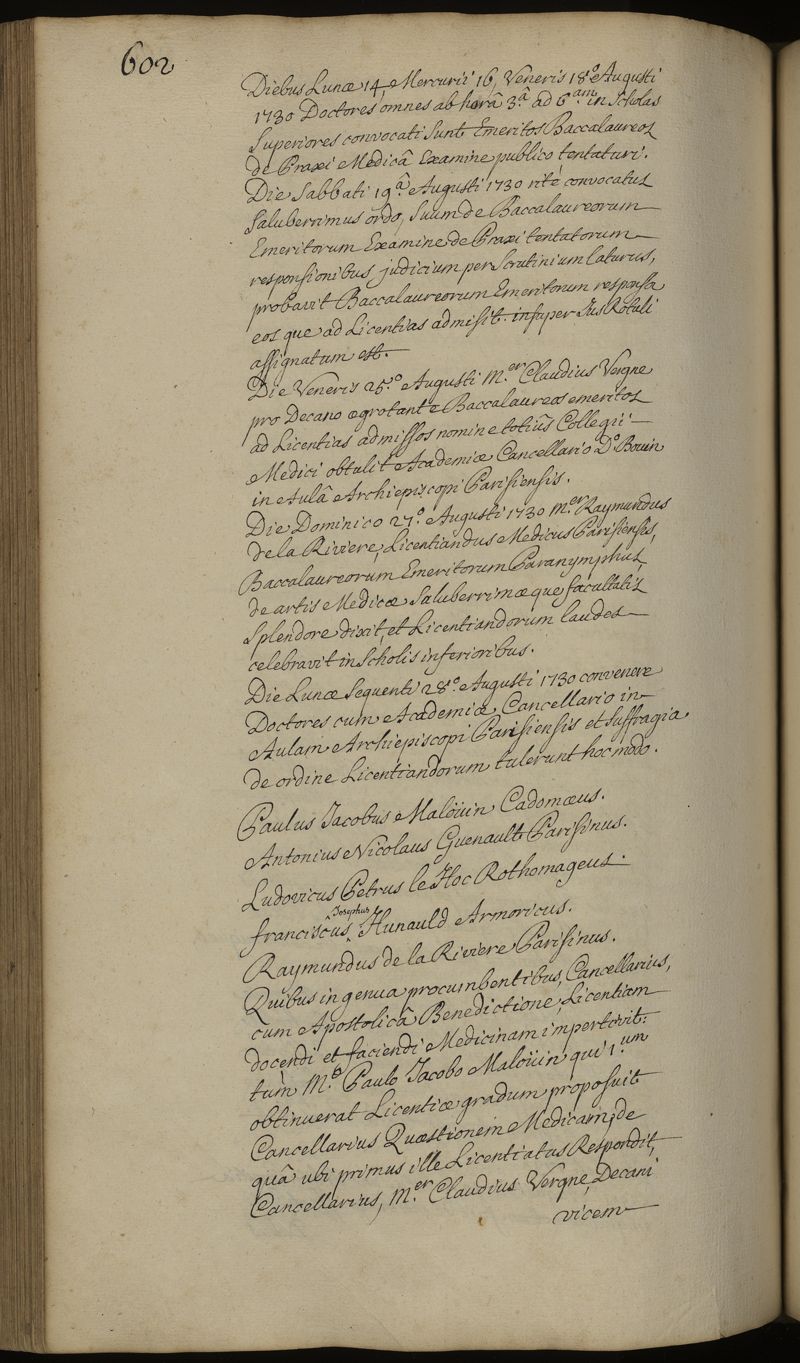 602
Diebus Lunæ 14, Mercurii 16, Veneris 18.º Augusti
1730 Doctores omnes ab horâ 3.â ad 6.am in Scholas
Superiores convocati sunt Emeritos Baccalaureos
de Praxi Medicâ Examine publico tentaturi.
Die Sabbati 19.â Augusti 1730 rité convocatus
Saluberrimus ordo, suum de Baccalaureorum
Emeritorum Examine de Praxi tentatorum
responsionibus judicium per Scrutinium laturus,
probavit Baccalaureorum Emeritorum responsa
eos que ad Licentias admisit. insuper Jus Rotuli
assignatum est.
Die Veneris 25.º Augusti M.er Claudius Vergne
pro Decano ægrotante Baccalaureos emeritos
ad Licentias admissos nomine totius Collegii
Medici obtulit Academiæ Cancellario D.º Bouin
in Aulâ Archiepiscopi Parisiensis.
Die Dominico 27.º Augusti 1730 M.er Raymundus
de la Riviere, Licentiandus Medicus Parisiensis,
Baccalaureorum Emeritorum Paranymphus,
de artis Medicæ Saluberrimæque facultatis
Splendore dixit, et Licentiandorum laudes
celebravit in Scholis inferioribus.
Die Lunæ Sequenti 28.º Augusti 1730 convenere
Doctores cum Academiæ Cancellario in
Aulam Archiepiscopi Parisiensis et suffragia
de ordine Licentiandorum tulerunt hoc modo.
Paulus Jacobus Maloüin Cadomæus.
Antonius Nicolaus Guenault Parisinus.
Ludovicus Petrus le Hoc Rothomageus.
Josephus
franciscus ^ Hunauld Armoricus.
Raymundus de la Riviere Parisinus.
Quibus in genua procumbentibus, Cancellarius,
cum Apostolicâ Benedictione, Licentiam
docendi et faciendi Medicinam impertivit:
tùm M.º Paulo Jacobo Maloüin qui 1.um
obtinuerat Licentiæ gradum proposuit
Cancellarius Quæstionem Medicam, de
quâ ubi primus ille Licentiatus Respondit,
Cancellarius, M.er Claudius Vergne, Decani
vicem